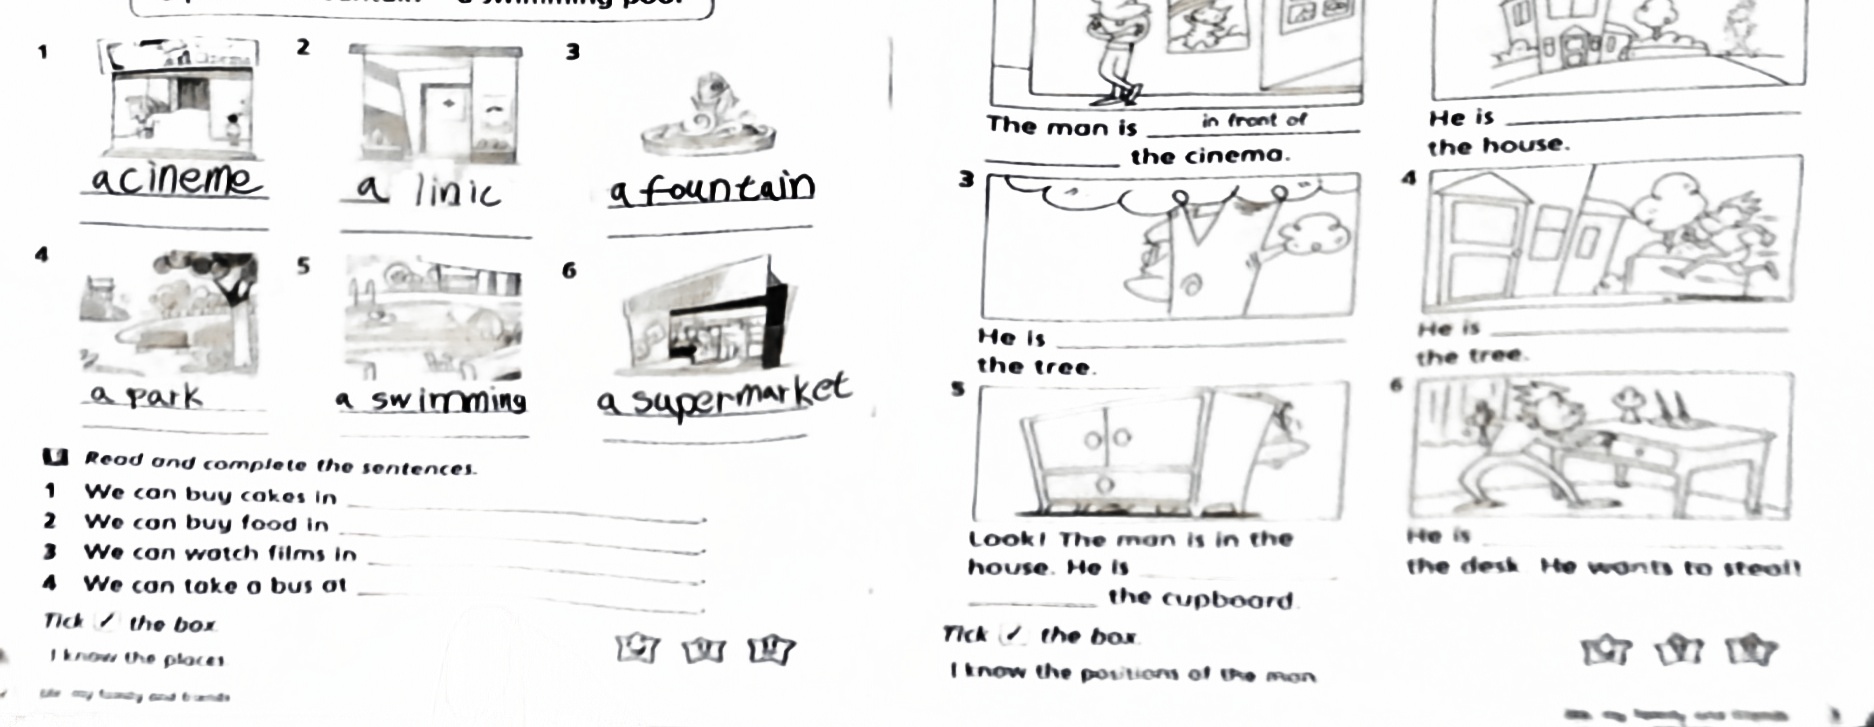 a swimming pool
1 2 3
a cineme a linic a fountain
4 5 6
a park a swimming a supermarket
Read and complete the sentences.
1 We can buy cakes in
2 We can buy food in
3 We can watch films in
4 We can take a bus at
Tick ✓ the box.
I know the places
my family and friends
The man is in front of
the cinema.
He is
the house.
3
He is
the tree.
4
He is
the tree.
5
Look! The man is in the
house. He is
the cupboard.
6
He is
the desk. He wants to steal!
Tick ✓ the box.
I know the positions of the man
my family and friends